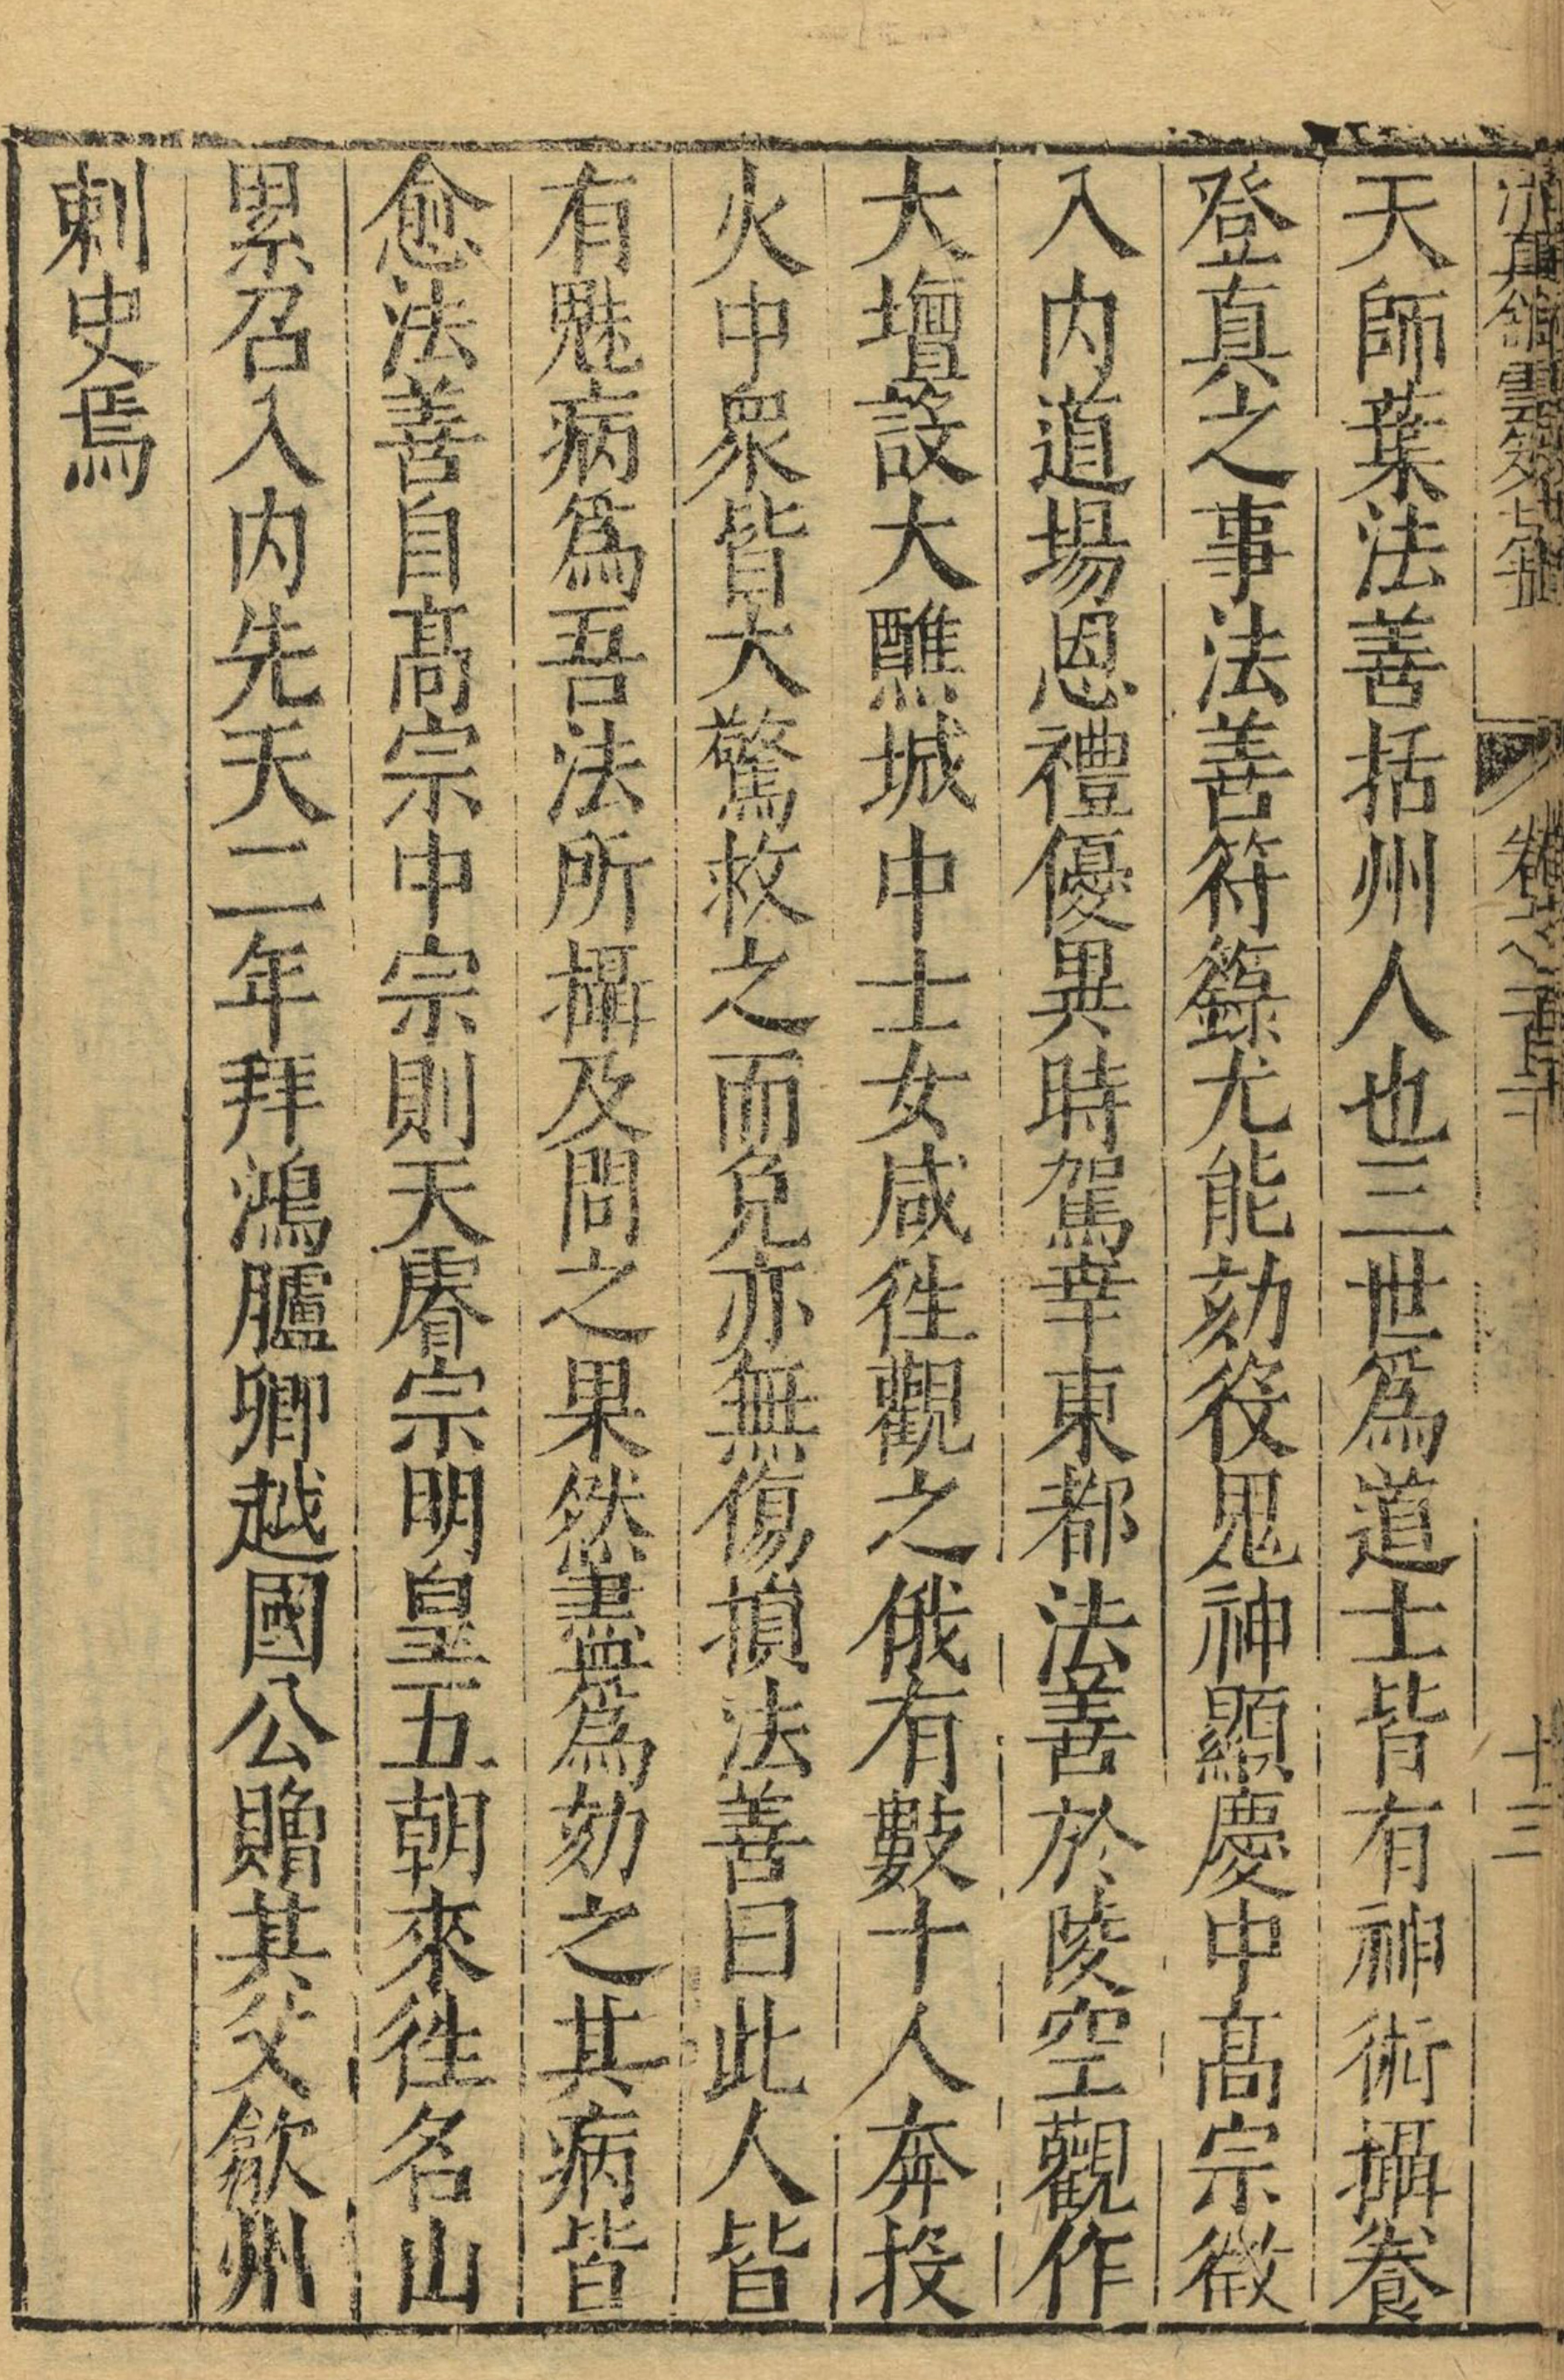 天師葉法善括州人也三世爲道士皆有神術攝養
登真之事法善符籙尤能劾役鬼神顯慶中髙宗徵
入内道場恩禮優異時駕幸東都法善於陵空觀作
大壇設大醮城中士女咸徃觀之俄有數十人奔投
火中衆皆大驚救之而免亦無傷損法善曰此人皆
有魅病爲吾法所攝及問之果然盡爲劾之其病皆
愈法善自髙宗中宗則天睿宗明皇五朝來徃名山
累召入内先天二年拜鴻臚卿越國公贈其父歙州
刺史焉